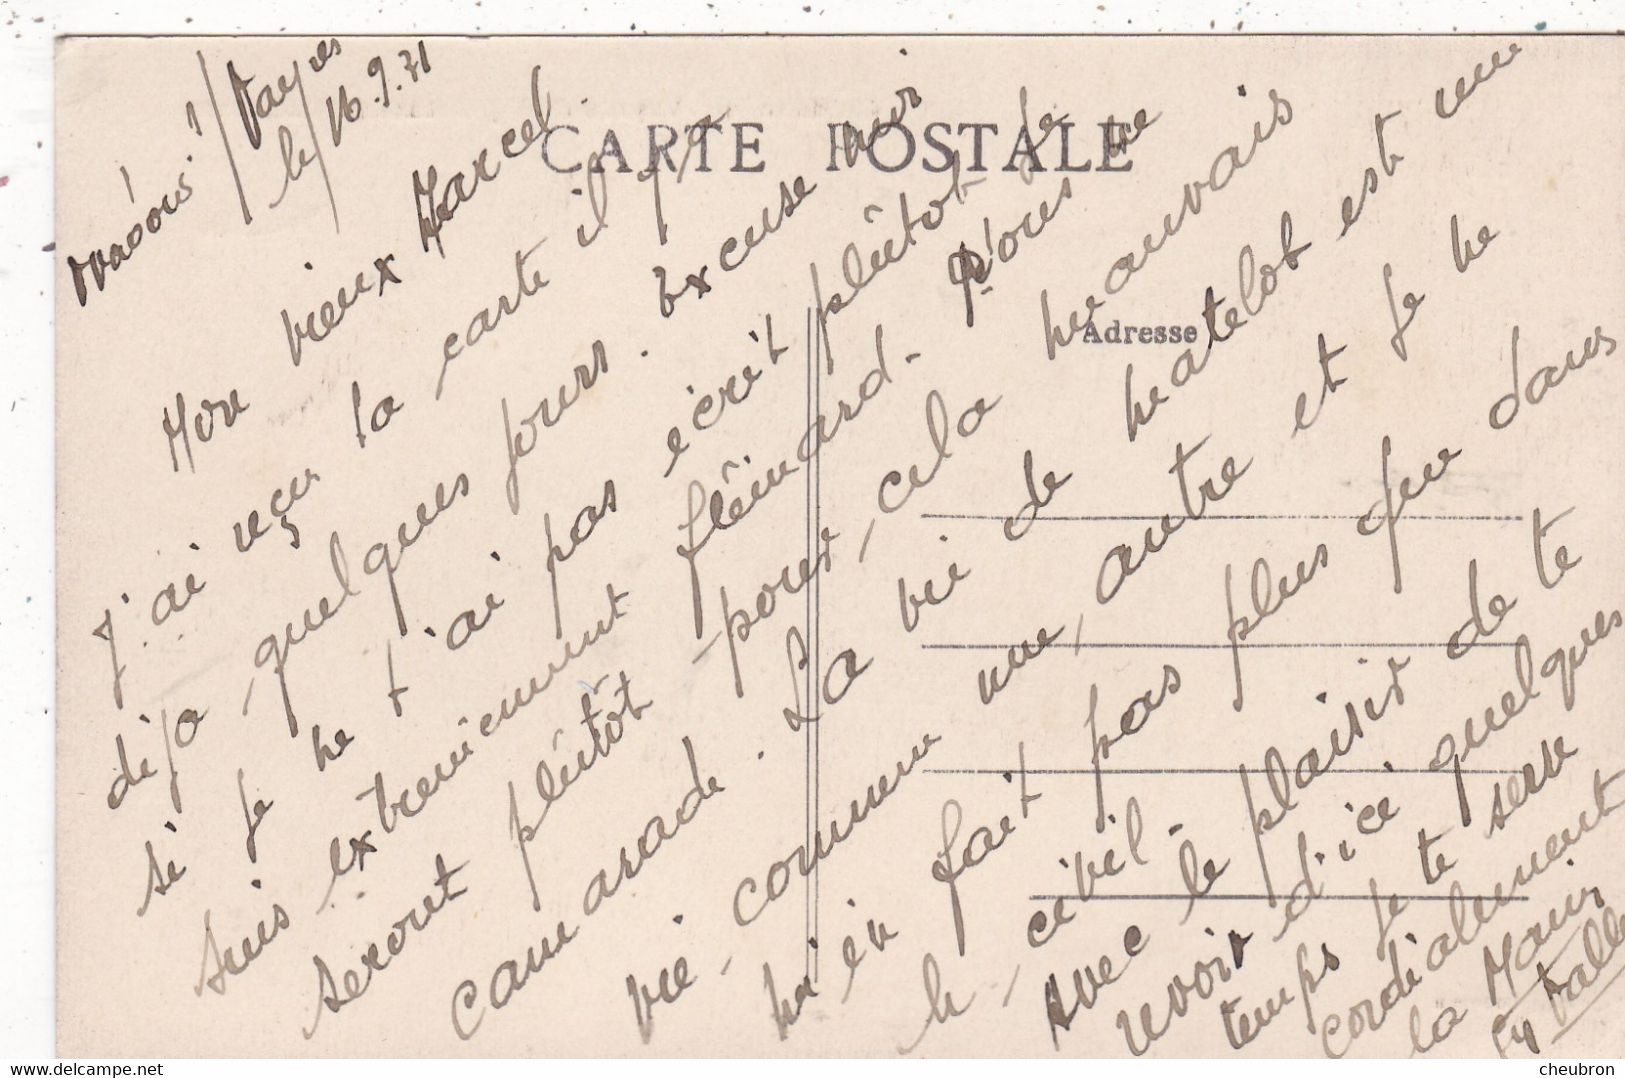 CARTE POSTALE
Adresse
le 16.9.31
Mon vieux Marcel.
J'ai reçu ta carte il y a
déja quelques jours. Excuse moi
si je ne t'ai pas écrit plûtot je
suis extremement flêmard. Nous ne
seront plûtôt pour cela mauvais
camarade. La vie de matelot est une
vie comme une autre et je ne
m'en fait pas plus que dans
le civil.
Avec le plaisir de te
revoir d'ici quelques
temps je te serre
cordialement
la Main
delcampe.net
cheubron